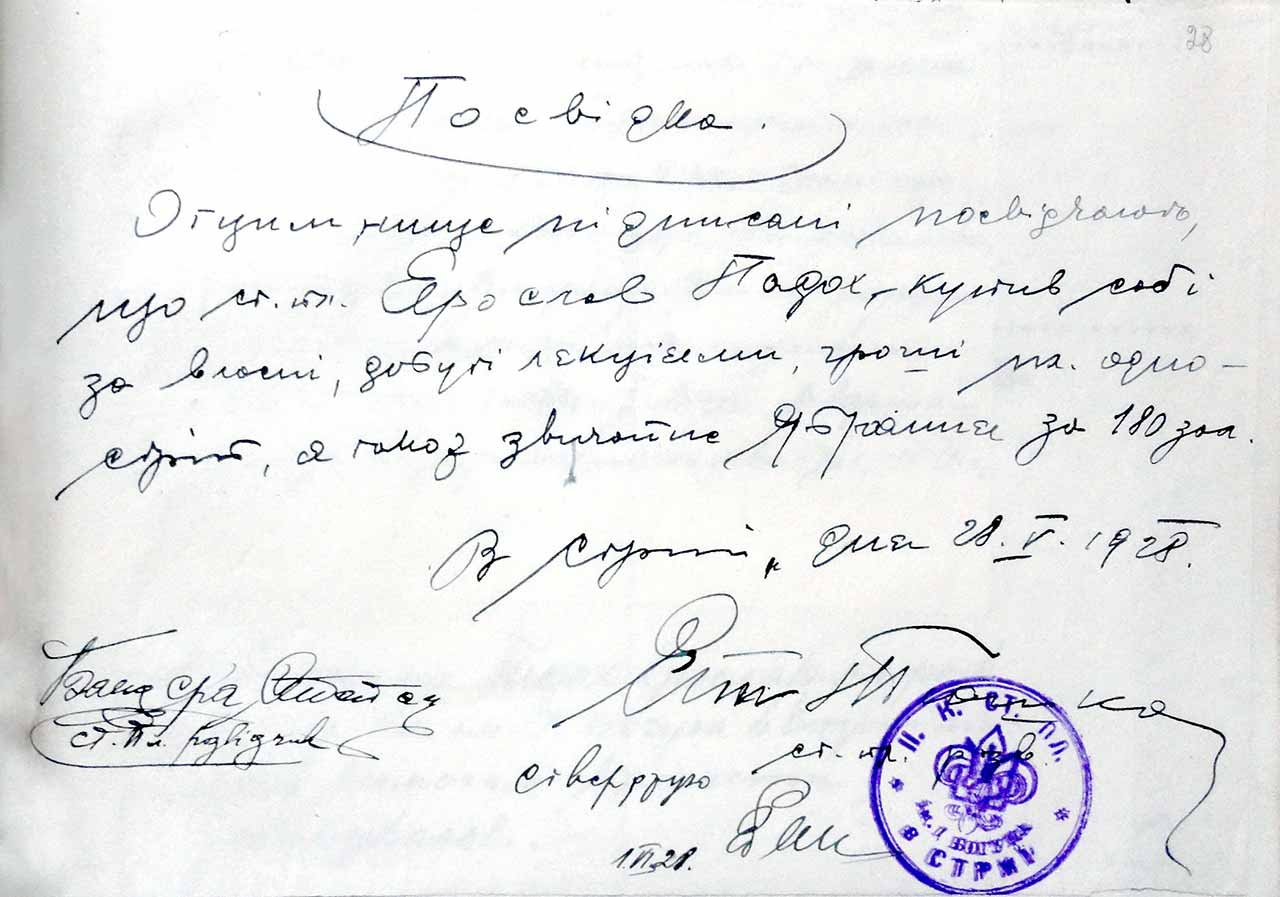 28
Посвідка.
Отцим, нище підписані посвідчають,
що ст. пл. Ярослав Падох, купив собі
за власні, добуті лекціями, гроші пл. одно-
стрій, а також звичайне убрання за 180 зол.
В Стрию, дня 28.V.1928.
Бандера Степан
ст. пл. розвідчик
ст. пл. розв.
стверджую
1.VI.28.
П. К. СТ. ПЛ.
ім. Д БОГУНА
в СТРИЮ